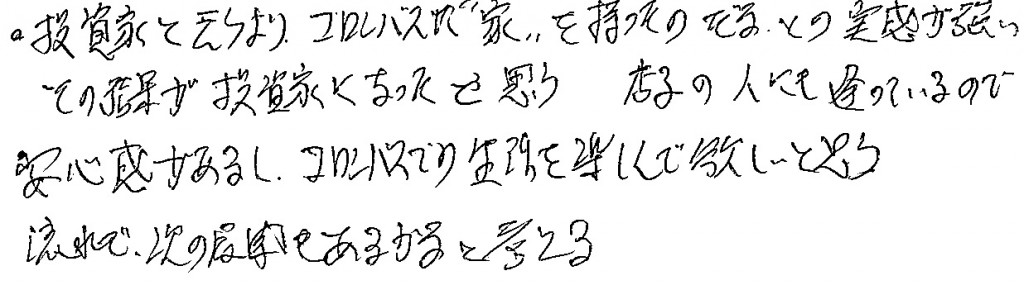 ・投資家と云うより、コロンバスに"家"を持ったのだなとの実感が強い
その結果が投資家になったと思う 店子の人にも逢っているので
・安心感があるし、コロンバスでの生活を楽しんで欲しいと思う
流れで、次の展開もあるかなと考える